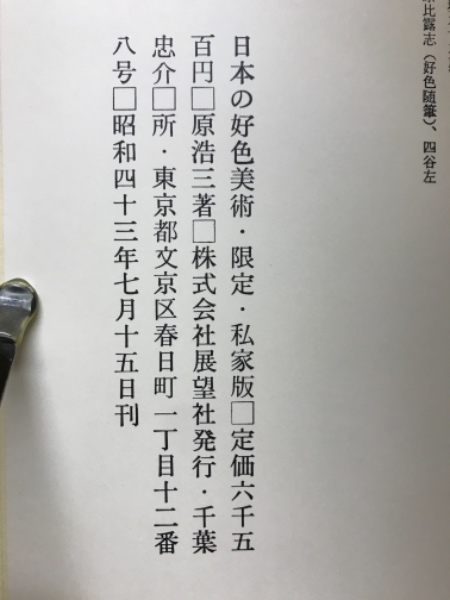 比露志（好色随筆）、四谷左
日本の好色美術・限定・私家版□定価六千五
百円□原浩三著□株式会社展望社発行・千葉
忠介□所・東京都文京区春日町一丁目十二番
八号□昭和四十三年七月十五日刊